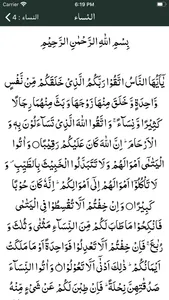 6:19 PM
النساء
النساء : 4
بِسْمِ اللّٰهِ الرَّحْمٰنِ الرَّحِيْمِ
يٰۤاَيُّهَا النَّاسُ اتَّقُوْا رَبَّكُمُ الَّذِىْ خَلَقَكُمْ مِّنْ نَّفْسٍ
وَّاحِدَةٍ وَّخَلَقَ مِنْهَا زَوْجَهَا وَبَثَّ مِنْهُمَا رِجَالًا
كَثِيْرًا وَّنِسَآءً‌ ۚ وَاتَّقُوا اللّٰهَ الَّذِىْ تَسَآءَلُوْنَ بِهٖ وَ
الْاَرْحَامَ‌ ؕ اِنَّ اللّٰهَ كَانَ عَلَيْكُمْ رَقِيْبًا‏ ﴿۱﴾ وَاٰتُوا
الْيَتٰمٰٓى اَمْوَالَهُمْ‌ وَلَا تَتَبَدَّلُوا الْخَبِيْثَ بِالطَّيِّبِ وَ
لَا تَاْكُلُوْۤا اَمْوَالَهُمْ اِلٰٓى اَمْوَالِكُمْ‌ؕ اِنَّهٗ كَانَ حُوْبًا
كَبِيْرًا‏ ﴿۲﴾ وَاِنْ خِفْتُمْ اَلَّا تُقْسِطُوْا فِى الْيَتٰمٰى
فَانْكِحُوْا مَا طَابَ لَكُمْ مِّنَ النِّسَآءِ مَثْنٰى وَثُلٰثَ وَ
رُبٰعَ‌ ۚ فَاِنْ خِفْتُمْ اَلَّا تَعْدِلُوْا فَوَاحِدَةً اَوْ مَا مَلَكَتْ
اَيْمَانُكُمْ‌ ؕ ذٰ لِكَ اَدْنٰٓى اَلَّا تَعُوْلُوْا ﴿۳﴾ وَاٰتُوا النِّسَآءَ
صَدُقٰتِهِنَّ نِحْلَةً‌ ؕ فَاِنْ طِبْنَ لَكُمْ عَنْ شَىْءٍ